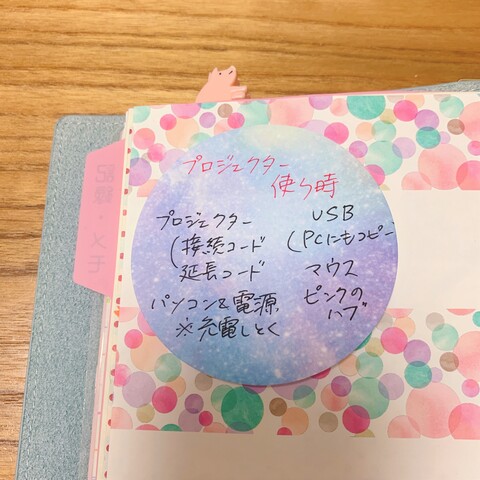 プロジェクター
使う時
プロジェクター
(接続コード
延長コード
パソコン&電源
※充電しとく
USB
(PCにもコピー
マウス
ピンクの
ハブ